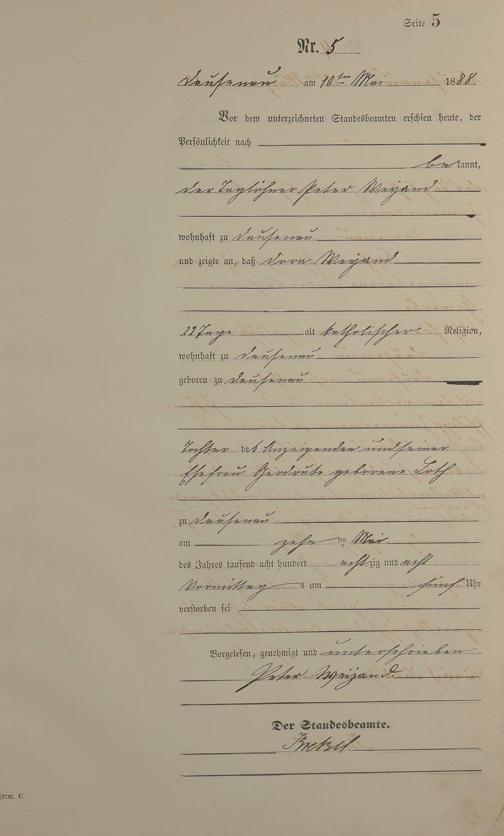 Seite 5
Nr. 5
Dausenau am 10ten Mai 1888
Vor dem unterzeichneten Standesbeamten erschien heute, der
Persönlichkeit nach
bekannt,
der Taglöhner Peter Weyand
wohnhaft zu Dausenau
und zeigte an, daß Dora Weyand
22 Tage alt katholischer Religion,
wohnhaft zu Dausenau
geboren zu Dausenau
Tochter des Anzeigenden und seiner
Ehefrau geborene Loth
zu Dausenau
am zehn ten Mai
des Jahres tausend acht hundert achtzig und acht
Vormittags um fünf Uhr
verstorben sei
Vorgelesen, genehmigt und unterschrieben
Peter Weijand
Der Standesbeamte.
Form. C.